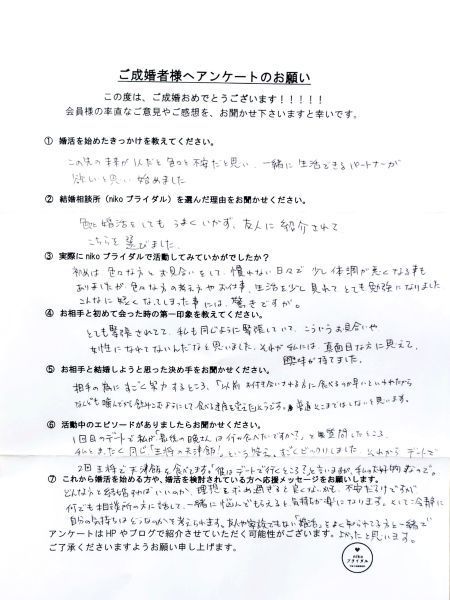 ご成婚者様へアンケートのお願い
この度は、ご成婚おめでとうございます！！！！！
会員様の率直なご意見やご感想を、お聞かせ下さいますと幸いです。
① 婚活を始めたきっかけを教えてください。
この先のまま1人だと色々と不安だと思い、一緒に生活できるパートナーが
欲しいと思い始めました
② 結婚相談所（nikoブライダル）を選んだ理由をお聞かせください。
色々婚活をしてもうまくいかず、友人に紹介されて
こちらを選びました
③ 実際にnikoブライダルで活動してみていかがでしたか？
初めは色々な方とお見合いをして、慣れない日々で少し体調が悪くなる事も
ありましたが色々な方の考え方やお仕事、生活を少し見れてとても勉強になりました
こんなに早く決まってしまった事には、驚きですが。
④ お相手と初めて会った時の第一印象を教えてください。
とても緊張されてて、私も同じように緊張していて、こういうお見合いや
女性になれてないんだなと思いました。それが私には、真面目な方に見えて、
興味が持てました。
⑤ お相手と結婚しようと思った決め手をお聞かせください。
相手の為にすごく努力するところ、「以前お付き合いされてる方に食べるのが早いといわれたから
なんども噛んでから飲みこむようにして食べる速度を変えたようです。普通そこまではしないと思います。
⑥ 活動中のエピソードがありましたらお聞かせください。
1回目のデートで私が「最後の晩さんは何の食べたいですか？」と質問したところ、
私とまったく同じ「王将の天津飯」という答え、すごくビックリしました。それからデートで
2回王将で天津飯を食べてます。「彼はデートで行くところ？」と言いますが、私の大好物なので。
⑦ これから婚活を始める方や、婚活を検討されている方へ応援メッセージをお願いします。
どんな方と結婚すればいいのか、理想を求め過ぎると良くないので、不安だらけですが
何でも相談所の方に話して、一緒に悩んでもらえると気持ちが楽になります。そして冷静に
自分の気持ちはどうなのかって考えられます。友人や家族でもない「婚活」をよく知られてる方と一緒で
よかったと思います。
アンケートはHPやブログで紹介させていただく可能性がございます。
ご了承くださいますようお願い申し上げます。
niko
ブライダル